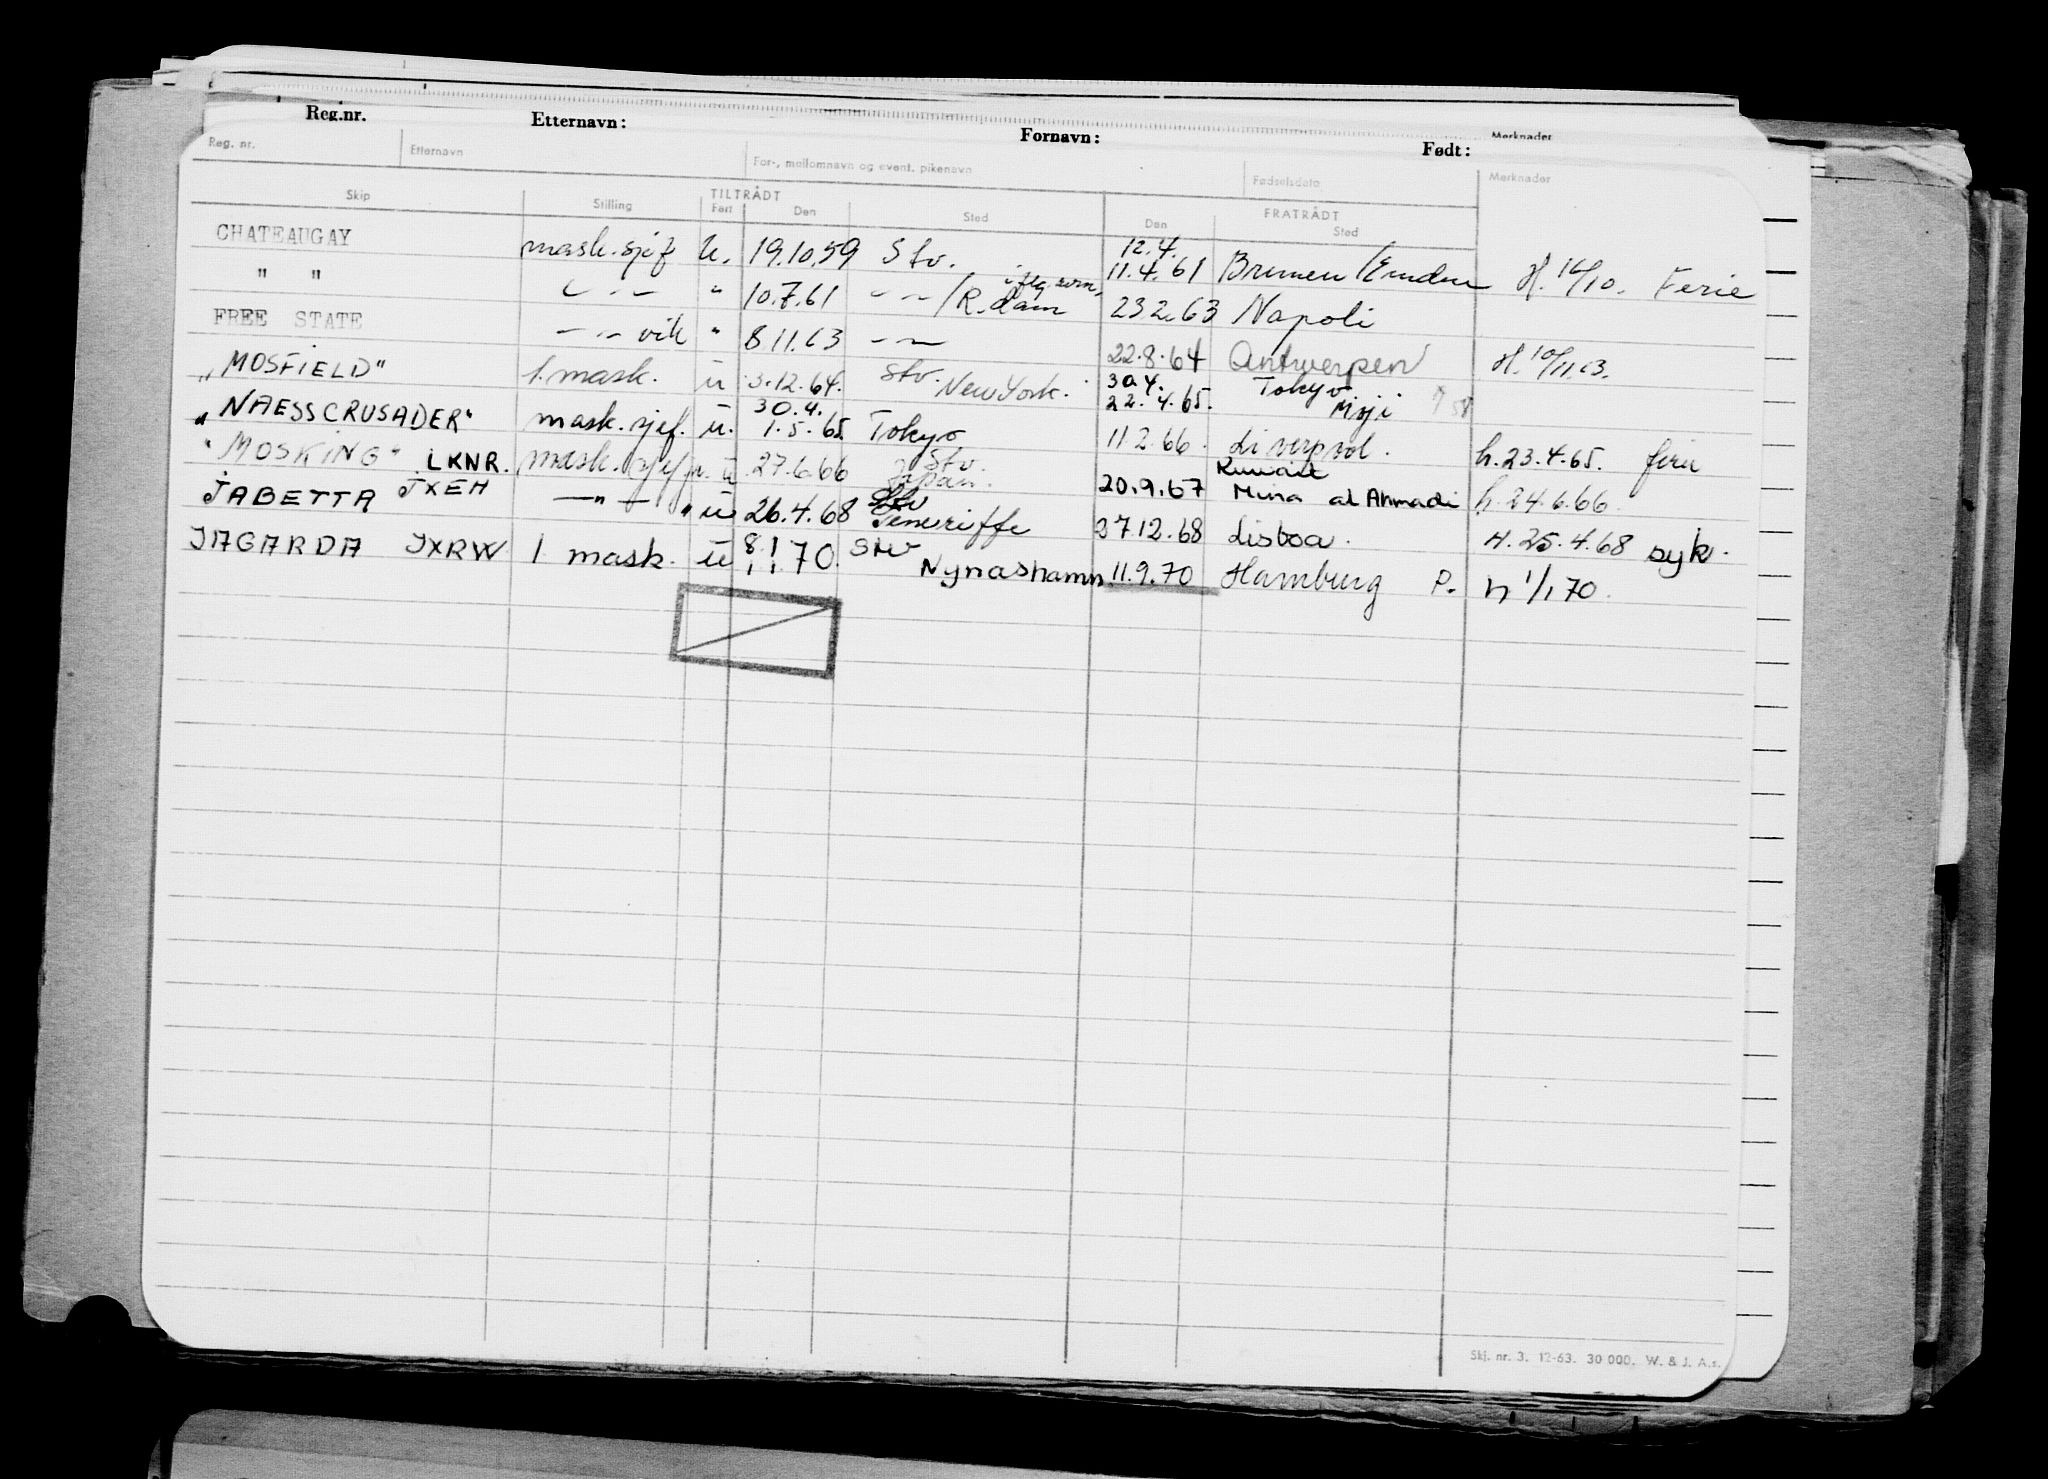 Reg.nr. Etternavn: Fornavn: Født: Merknader
Reg. nr. Etternavn For-, mellomnavn og event. pikenavn Fødselsdato Merknader
Skip Stilling TILTRÅDT Fart Den Sted FRATRÅDT Den Sted
CHATEAUGAY mask.sjef u. 19.10.59 Stv. 12.4. 11.4.61 Bremen/Emden H. 16/10. Ferie
" " — " — " 10.7.61 — " — /R.dam 23.2.63 Napoli
FREE STATE — " — vik " 8.11.63 — " — 22.8.64 Antwerpen H. 10/11.63.
"MOSFIELD" 1. mask. u 3.12.64. Stv. New York. 30.4. 22.4.65. Tokyo Moji
"NAESS CRUSADER" mask.sjef. u. 30.4. 1.5.65 Tokyo 11.2.66. Liverpool. h.23.4.65. ferie
"MOSKING" LKNR. mask.sjef u 27.6.66 Stv. Japan. 20.9.67 Kuwait Mina al Ahmadi h.24.6.66.
JABETTA JXEH — " — " u 26.4.68 Stv Teneriffe 27.12.68 Lisboa. H.25.4.68 syk.
JAGARDA JXRW 1 mask. u 8.1 1.1.70. Stv Nynashamn 11.9.70 Hamburg P. h 1/1 70.
Skj. nr. 3. 12-63. 30 000. W. & J. A.s.